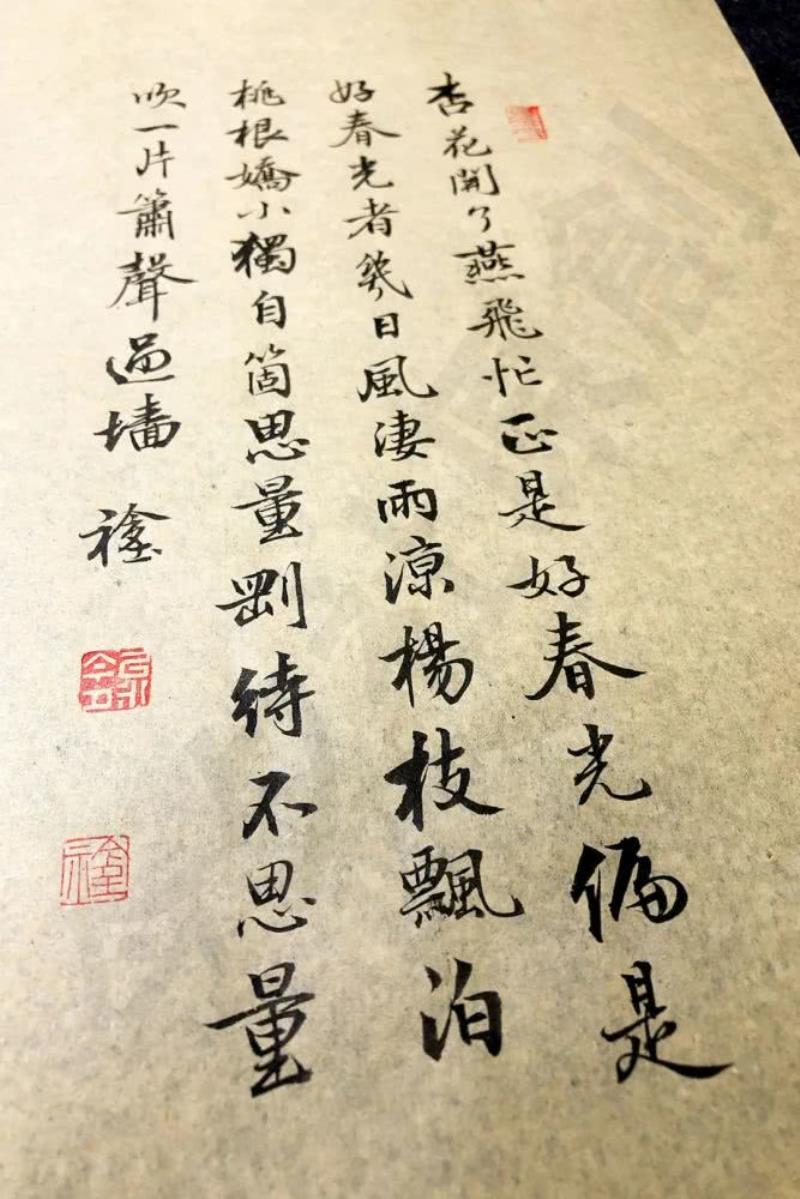 杏花開了燕飛忙正是好春光偏是
好春光者幾日風淒雨涼楊枝飄泊
桃根嬌小獨自箇思量剛待不思量
吹一片簫聲過墻